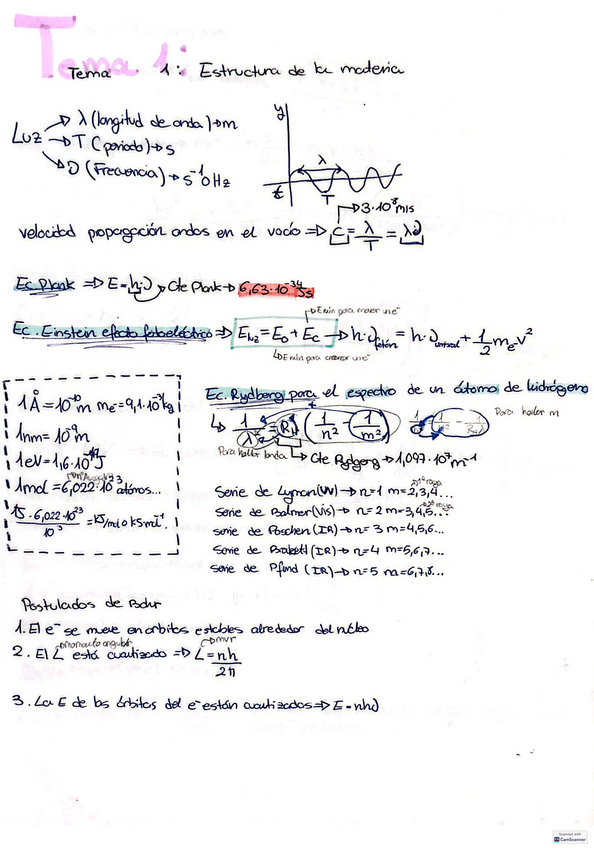 Tema 1:
Tema 1: Estructura de la materia
Luz → λ (longitud de onda) → m
→ T (periodo) → s
→ ν (Frecuencia) → s⁻¹ o Hz
y
λ
T
t
→ 3·10⁸ m/s
velocidad propagación ondas en el vacío ⇒ c = λ/T = λν
Ec. Plank ⇒ E = h·ν → Cte Plank → 6,63·10⁻³⁴ Js
Ec. Einstein efecto fotoeléctrico ⇒ E luz = E₀ + Ec → h·ν fotón = h·ν umbral + 1/2 mₑ v²
1 Å = 10⁻¹⁰ m mₑ- = 9,1·10⁻³¹ kg
1nm = 10⁻⁹ m
1eV = 1,6·10⁻¹⁹ J
1mol = 6,022·10²³ átomos...
1J · 6,022·10²³ / 10³ = KJ/mol o KJ·mol⁻¹
Ec. Rydberg para el espectro de un átomo de hidrógeno
↳ 1/λ = R (1/n² - 1/m²)
Para hallar m
Para hallar landa
Cte Rydgerg → 1,097·10⁷ m⁻¹
Serie de Lyman (UV) → n=1 m=2,3,4...
Serie de Balmer (Vis) → n=2 m=3,4,5...
Serie de Paschen (IR) → n=3 m=4,5,6...
Serie de Brakett (IR) → n=4 m=5,6,7...
Serie de Pfund (IR) → n=5 m=6,7,8...
Postulados de Bohr
1. El e⁻ se mueve en orbitas estables alrededor del núcleo
→ momento angular → mvr
2. El L está cuantizado ⇒ L = nh/2π
3. La E de las órbitas del e⁻ están cuantizadas ⇒ E = nhν
Scanned with
CamScanner